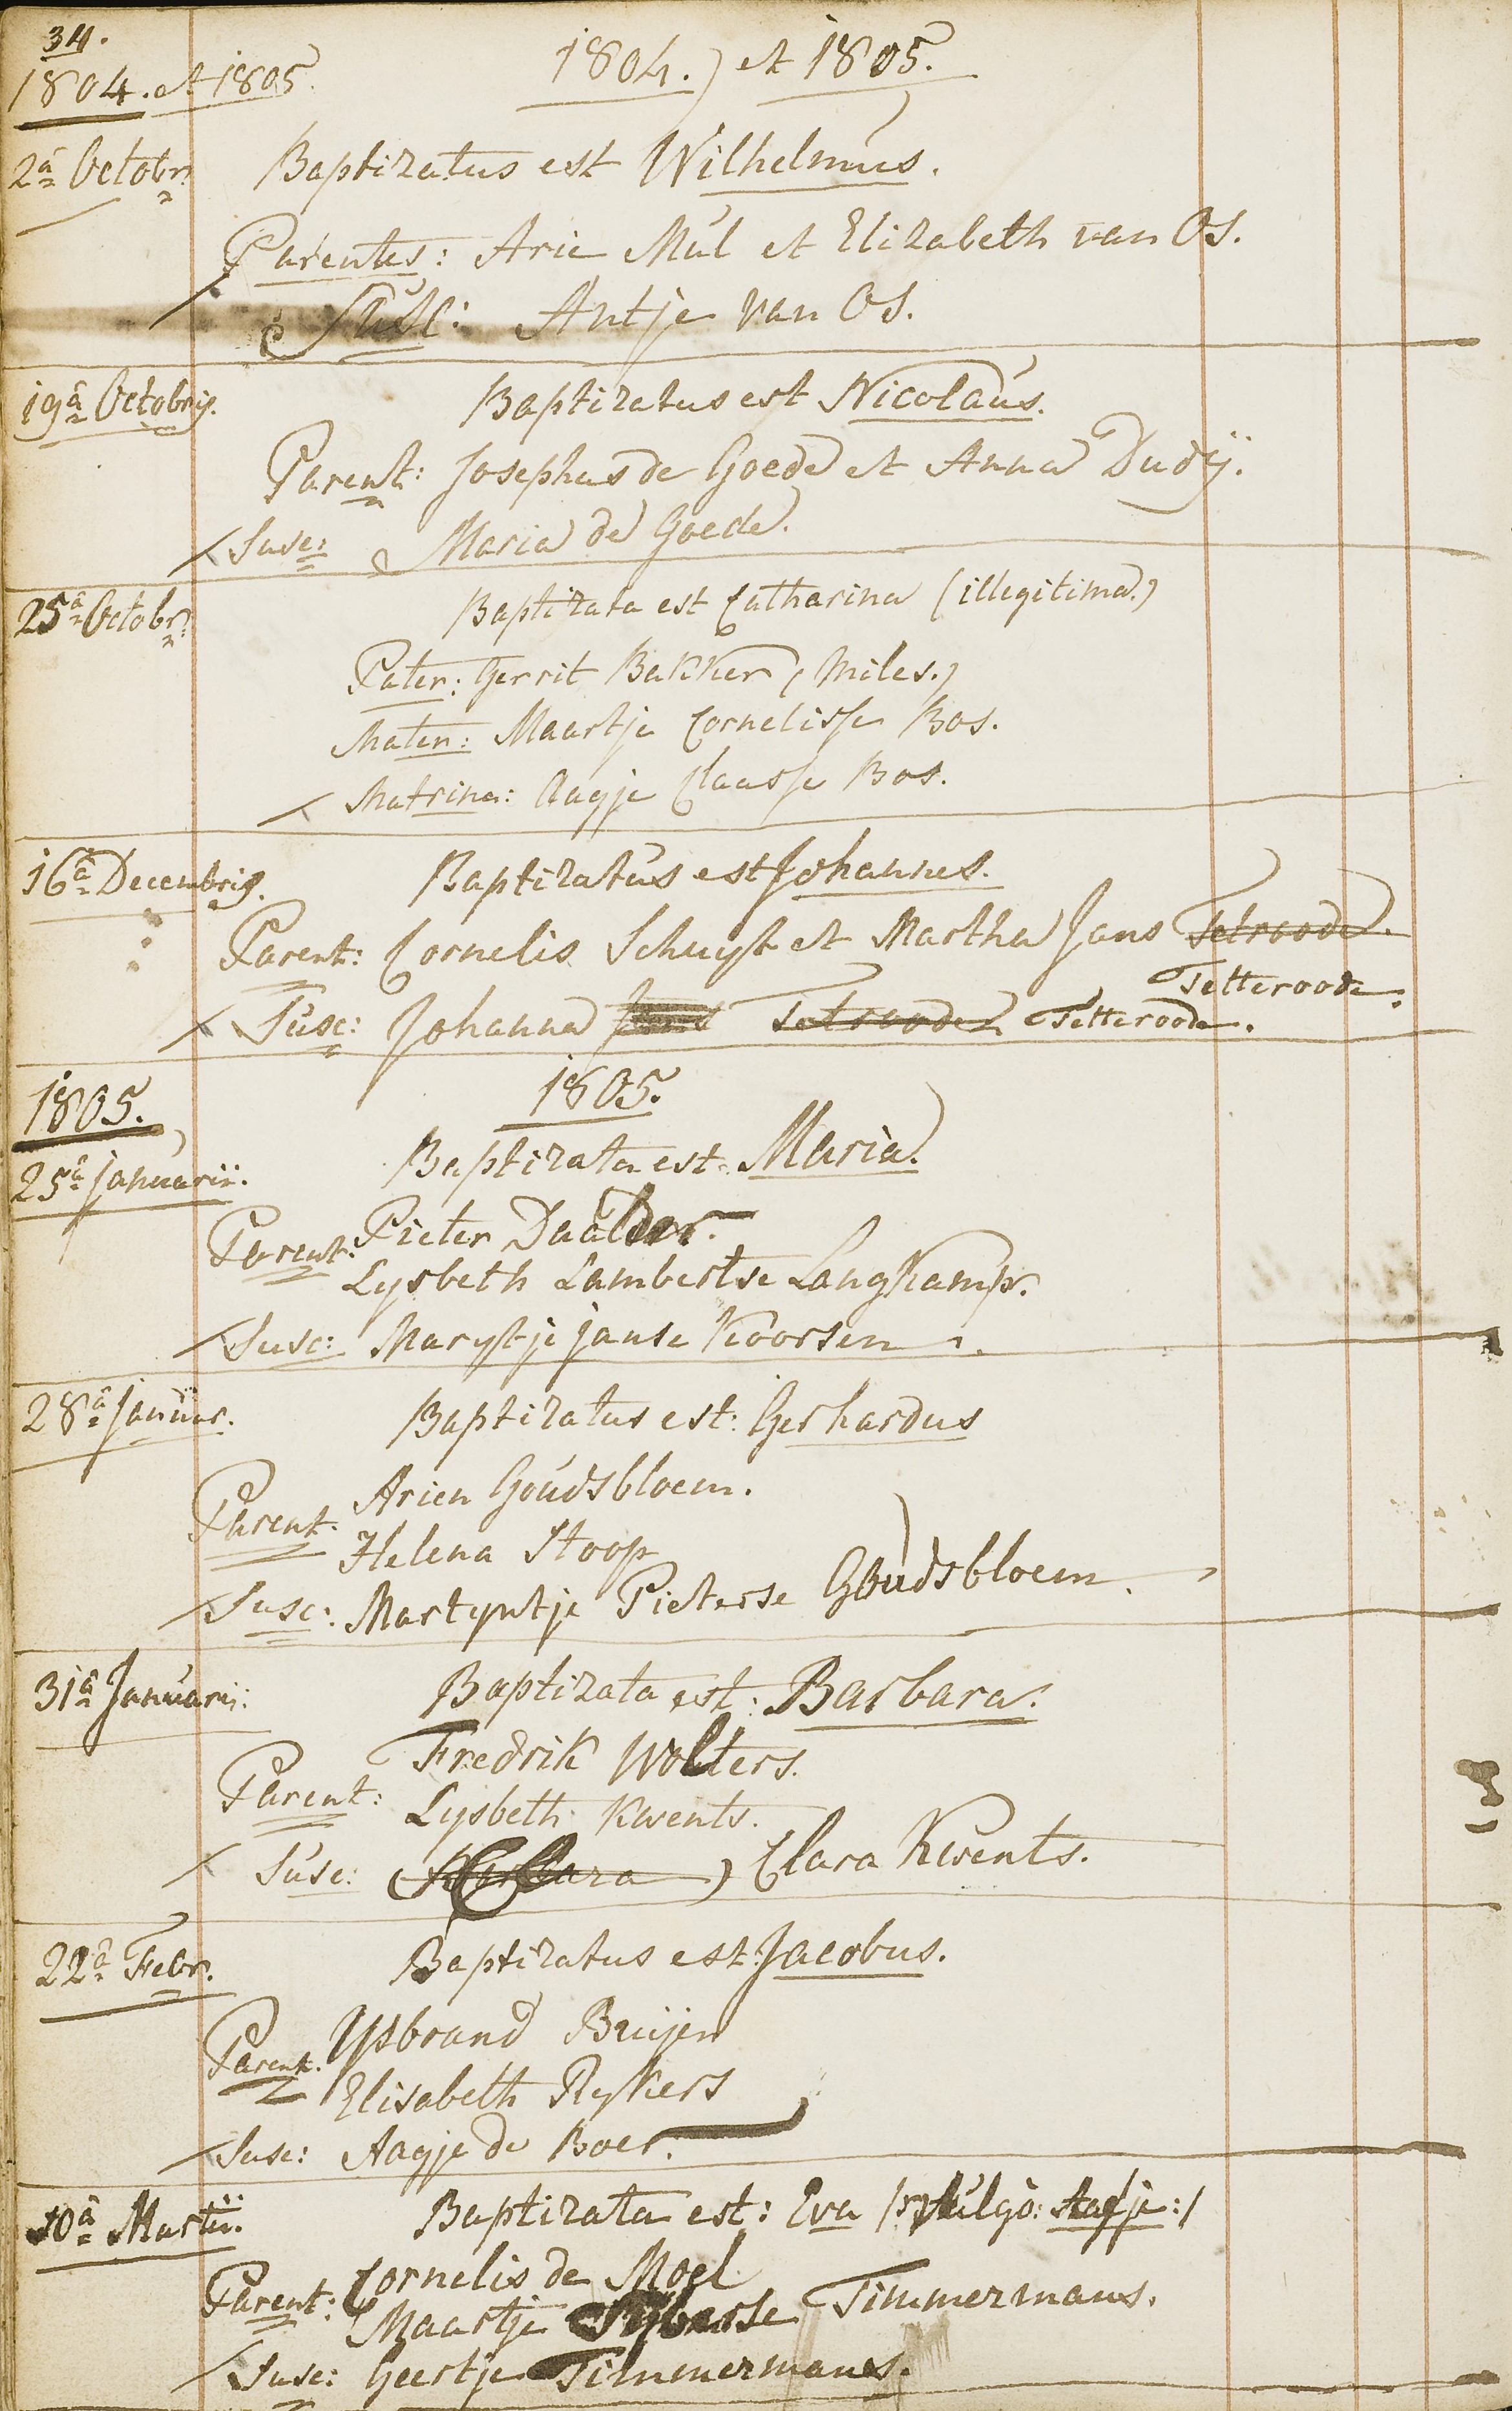 34.
1804. et 1805.
1804.) et 1805.
2a Octobr.
Baptizatus est Wilhelmus.
Parentes: Arie Mul et Elizabeth van Os.
Susc: Antje van Os.
19a Octobris.
Baptizatus est Nicolaus.
Parent: Josephus de Goede et Anna Dudÿ.
Susc: Maria de Goede.
25a Octobr.
Baptizata est Catharina (illegitima.)
Pater: Gerrit Bakker (Miles.)
Mater: Maartje Cornelisse Bos.
Matrina: Aagje Claasse Bos.
16a Decembris.
Baptizatus est Johannes.
Parent: Cornelis Schuyt et Martha Jans Tetroode.
Tetteroode.
Susc: Johanna Jans Tetroode Tetteroode.
1805.
1805.
25a Januarii.
Baptizata est Maria.
Parent: Pieter Daalder.
Lysbeth Lambertse Langkamp.
Susc: Marytje Janse Koorsen.
28a Januar.
Baptizatus est: Gerhardus
Parent. Arien Goudsbloem.
Helena Stoop
Susc: Martyntje Pieterse Goudsbloem.
31a Januarii.
Baptizata est: Barbara.
Fredrik Wolters.
Parent: Lysbeth Kwents.
Susc: (Barbara) Clara Kwents.
22a Febr.
Baptizatus est Jacobus.
Parent. Ysbrand Bruijn
Elisabeth Rykers
Susc: Aagje de Boer.
10a Martii.
Baptizata est: Eva /:vulgo: Aafje:/
Parent: Cornelis de Moel
Maartje Sijberse Timmermans.
Susc: Geertje Timmermans.